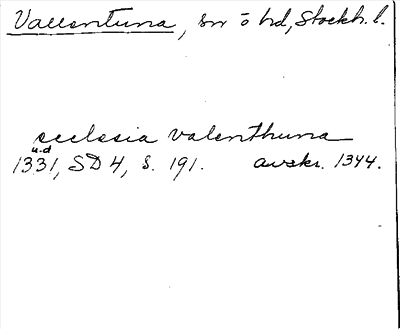 Vallentuna, sn o hd, Stockh. l.
ecclesia valenthuna
u.d
1331, SD 4, s. 191. avskr. 1344.